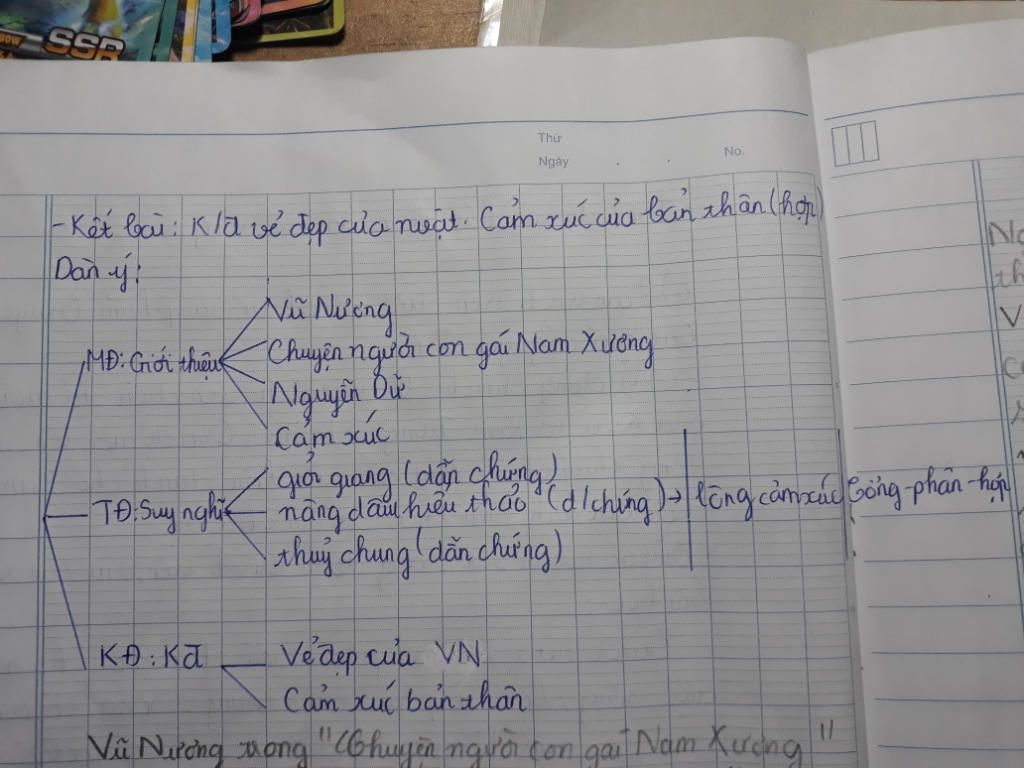 SSR
Thứ
Ngày . . No.
- Kết bài: K/đ vẻ đẹp của nvật. Cảm xúc của bản thân (hợp)
Dàn ý:
MĐ: Giới thiệu
Vũ Nương
Chuyện người con gái Nam Xương
Nguyễn Dữ
Cảm xúc
TĐ: Suy nghĩ
giỏi giang (dẫn chứng)
nàng dâu hiếu thảo (d/chứng) → lồng cảm xúc tổng-phân-hợp
thuỷ chung (dẫn chứng)
KĐ: Kđ
Vẻ đẹp của VN
Cảm xúc bản thân
Vũ Nương trong "Chuyện người con gái Nam Xương"